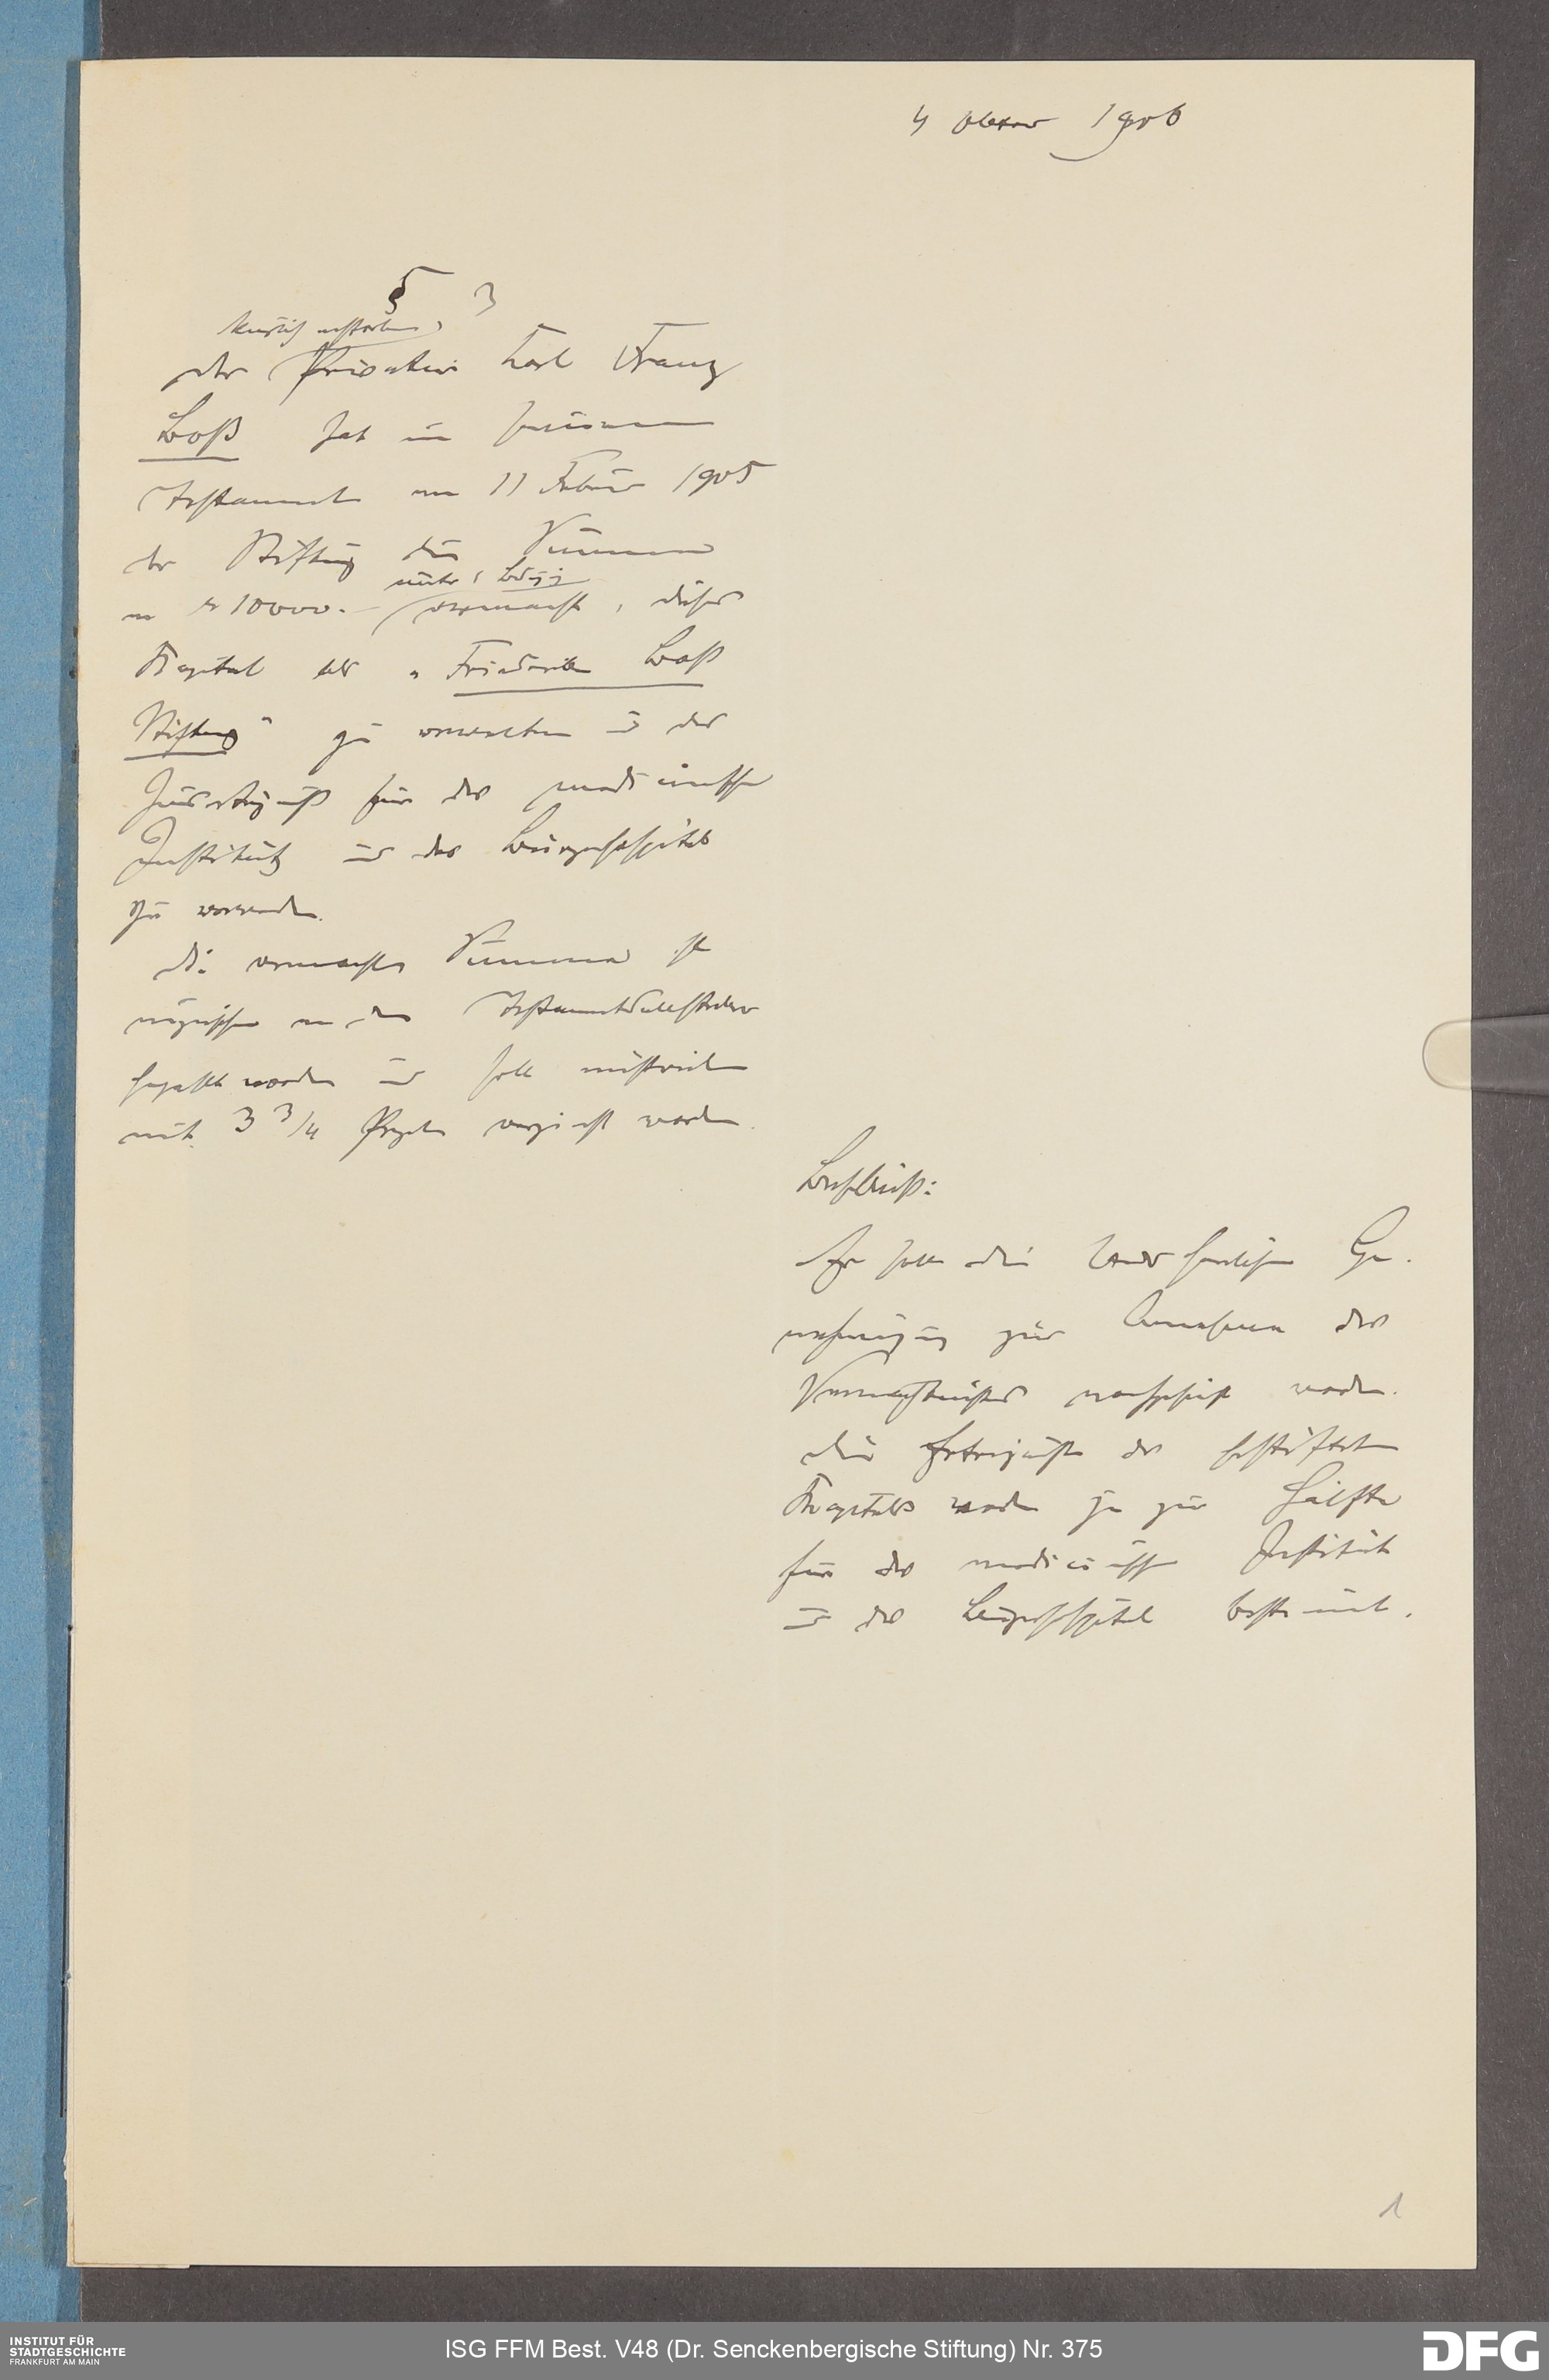 4 Oktober 1906
§ 3
kürzlich verstorbene
der Privatier Karl Franz
Boß hat in seinem
Testament vom 11 Februar 1905
der Stiftung die Summe
von M 10000.- vermacht, dieses
Kapital als „Friederike Boß
Stiftung" zu verwalten u das
Zinserträgniß für das medicinische
Institut und das Bürgerhospital
zu verwenden.
Die vermachte Summe ist
inzwischen von dem Testamentsvollstrecker
bezahlt worden und soll
mit 3 3/4 Prozent verzinst werden.
Beschluß:
Es soll die landesherrliche Ge-
nehmigung zur Annahme des
Vermächtnisses nachgesucht werden.
Die Erträgnisse des gestifteten
Kapitals werden je zur Hälfte
für das medicinische Institut
und das Bürgerhospital bestimmt.
1
INSTITUT FÜR
STADTGESCHICHTE
FRANKFURT AM MAIN
ISG FFM Best. V48 (Dr. Senckenbergische Stiftung) Nr. 375
DFG